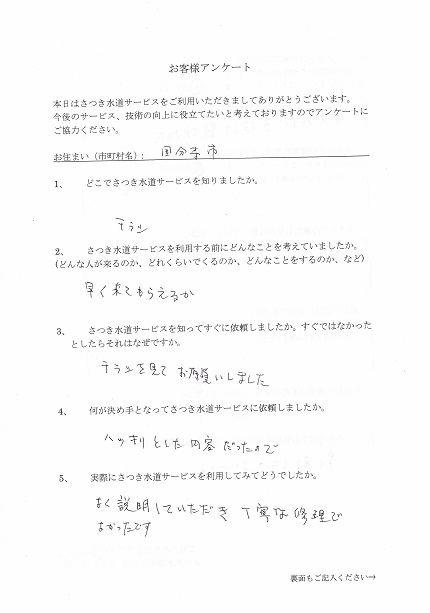 お客様アンケート
本日はさつき水道サービスをご利用いただきましてありがとうございます。
今後のサービス、技術の向上に役立てたいと考えておりますのでアンケートに
ご協力ください。
お住まい（市町村名）： 国分寺市
1、 どこでさつき水道サービスを知りましたか。
チラシ
2、 さつき水道サービスを利用する前にどんなことを考えていましたか。
(どんな人が来るのか、どれくらいでくるのか、どんなことをするのか、など)
早く来てもらえるか
3、 さつき水道サービスを知ってすぐに依頼しましたか。すぐではなかった
としたらそれはなぜですか。
チラシを見てお願いしました
4、 何が決め手となってさつき水道サービスに依頼しましたか。
ハッキリとした内容だったので
5、 実際にさつき水道サービスを利用してみてどうでしたか。
よく説明していただき丁寧な修理で
よかったです
裏面もご記入ください→